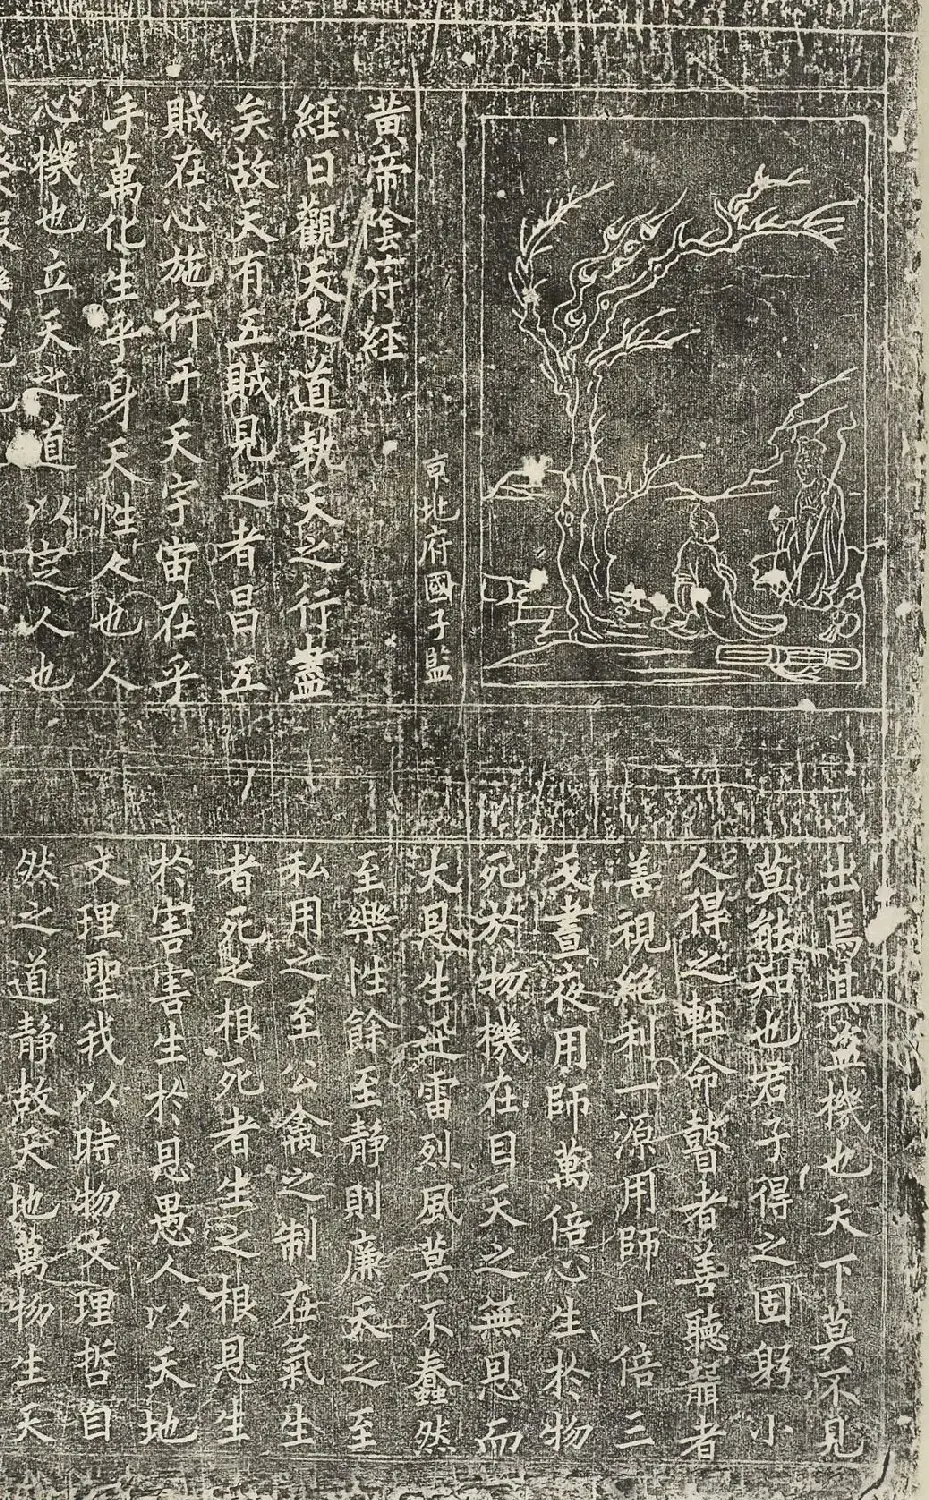 京兆府國子監
黃帝陰符經
經曰觀天之道執天之行盡
矣故天有五賊見之者昌五
賊在心施行于天宇宙在乎
手萬化生乎身天性人也人
心機也立天之道以定人也
出焉其盜機也天下莫不見
莫能知也君子得之固躬小
人得之輕命瞽者善聽聾者
善視絶利一源用師十倍三
反晝夜用師萬倍心生於物
死於物機在目天之無恩而
大恩生迅雷烈風莫不蠢然
至樂性餘至静則廉天之至
私用之至公禽之制在氣生
者死之根死者生之根恩生
於害害生於恩愚人以天地
文理聖我以時物文理哲自
然之道静故天地萬物生天